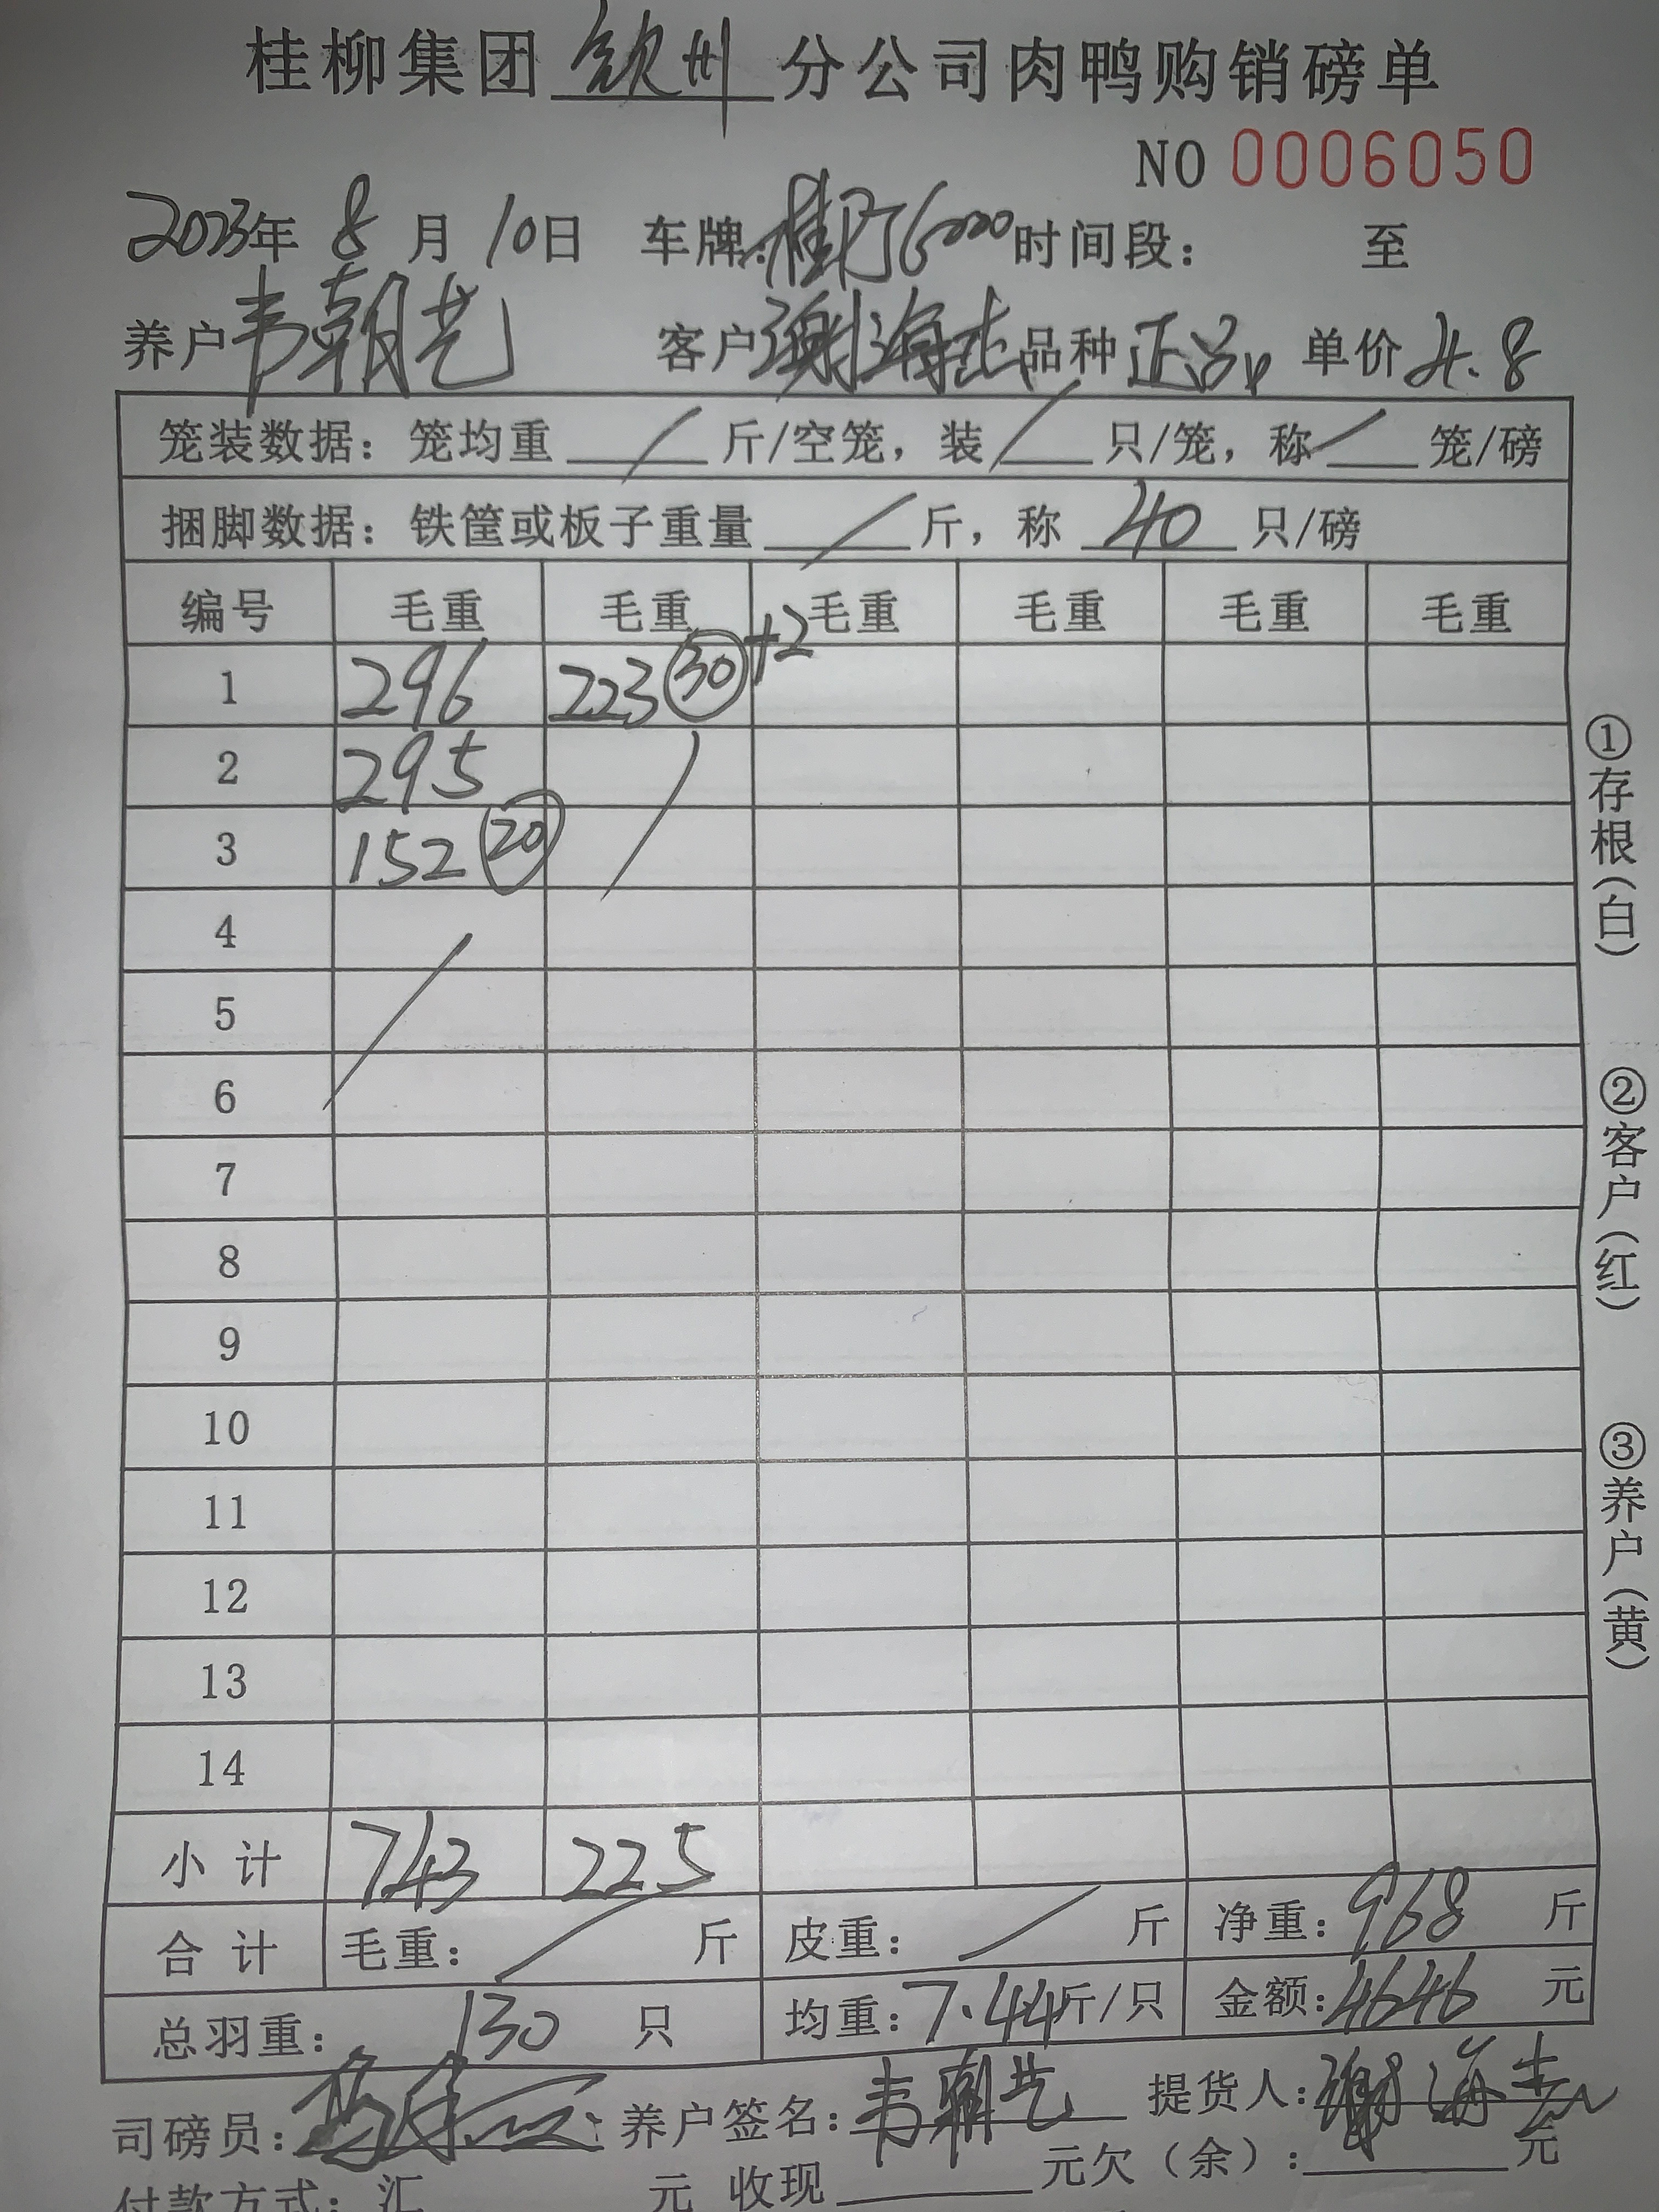 桂柳集团 钦州 分公司肉鸭购销磅单
NO 0006050
2023年 8 月 10日 车牌: 时间段: 至
养户 韦朝艺 客户 谢海 品种 正品 单价 4.8
笼装数据: 笼均重 / 斤/空笼, 装 / 只/笼, 称 / 笼/磅
捆脚数据: 铁筐或板子重量 / 斤, 称 40 只/磅
编号 毛重 毛重 毛重 毛重 毛重 毛重
1 296 223 (30) +2
2 295 /
3 152 (20)
4 /
5
6
7
8
9
10
11
12
13
14
小计 743 225
合计 毛重: / 斤 皮重: / 斤 净重: 968 斤
总羽重: 130 只 均重: 7.44 斤/只 金额: 4646 元
司磅员: 养户签名: 韦朝艺 提货人: 谢海
付款方式: 汇 元 收现 元欠(余): 元
①存根(白)
②客户(红)
③养户(黄)